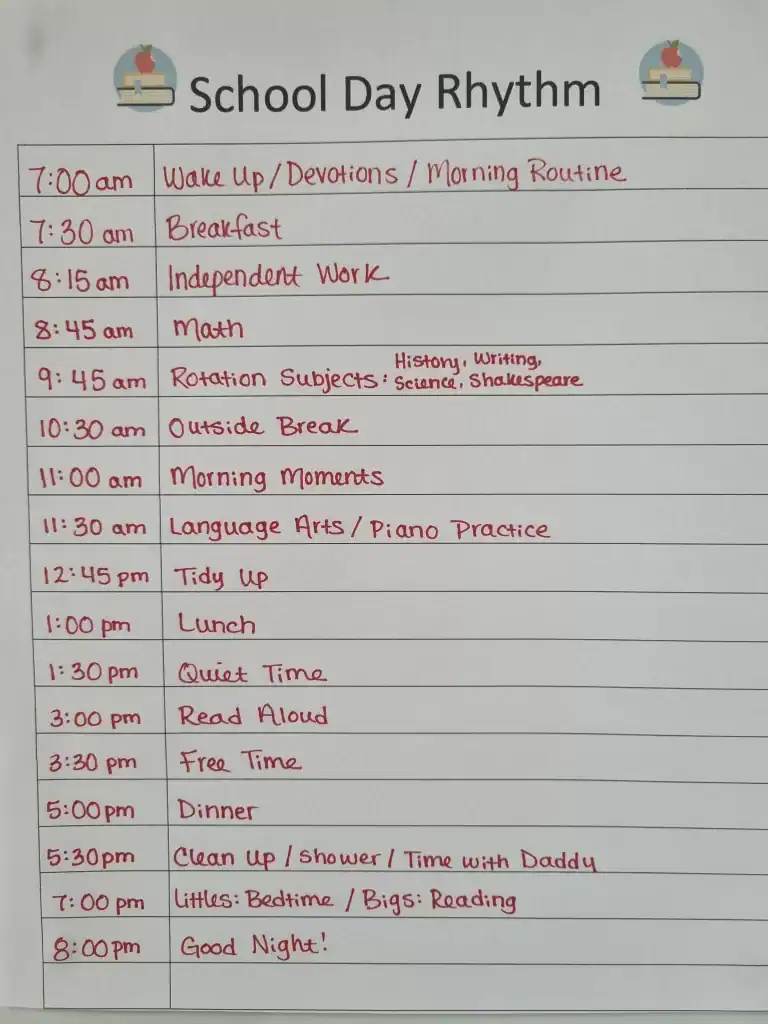 School Day Rhythm
7:00 am Wake Up / Devotions / Morning Routine
7:30 am Breakfast
8:15 am Independent Work
8:45 am Math
9:45 am Rotation Subjects: History, Writing,
Science, Shakespeare
10:30 am Outside Break
11:00 am Morning Moments
11:30 am Language Arts / Piano Practice
12:45 pm Tidy Up
1:00 pm Lunch
1:30 pm Quiet Time
3:00 pm Read Aloud
3:30 pm Free Time
5:00 pm Dinner
5:30 pm Clean Up / Shower / Time with Daddy
7:00 pm Littles: Bedtime / Bigs: Reading
8:00 pm Good Night!